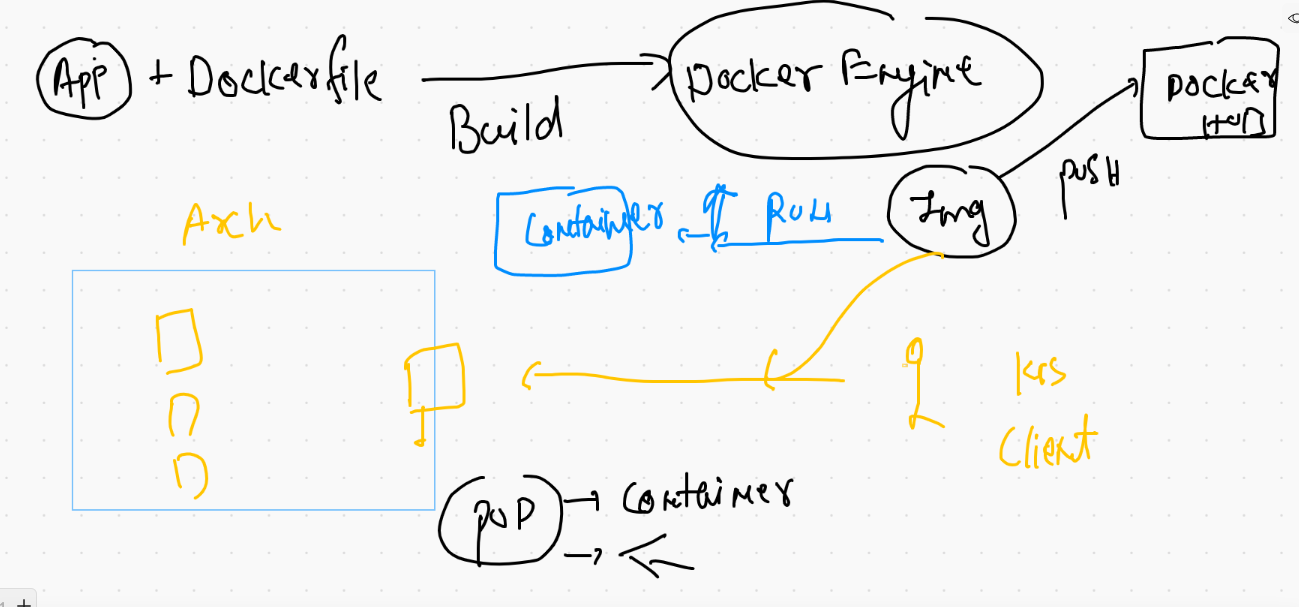 App + Dockerfile
Build
Docker Engine
Docker
HUB
PUSH
Img
Run
Container
Arch
K8s
Client
POD
Container